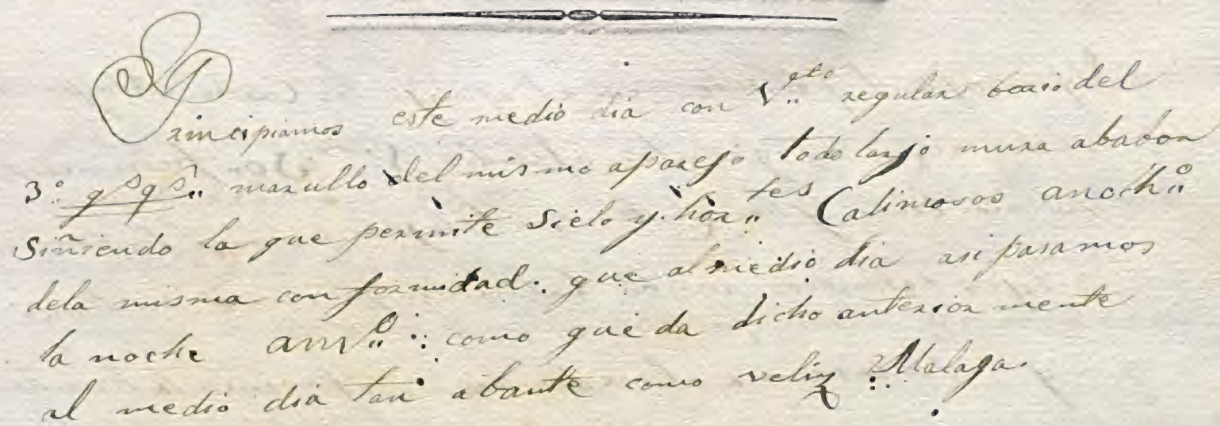 Principiamos este medio dia con V.to regular bario del
3.º qº qº marullo del mismo aparejo todo largo mura ababor
Siñiendo la que permite Sielo y hor.tes Calimosos anoch.º
dela misma conformidad. que al medio dia asi pasamos
la noche am.º como queda dicho anteriormente
al medio dia tan abante como veliz Malaga.